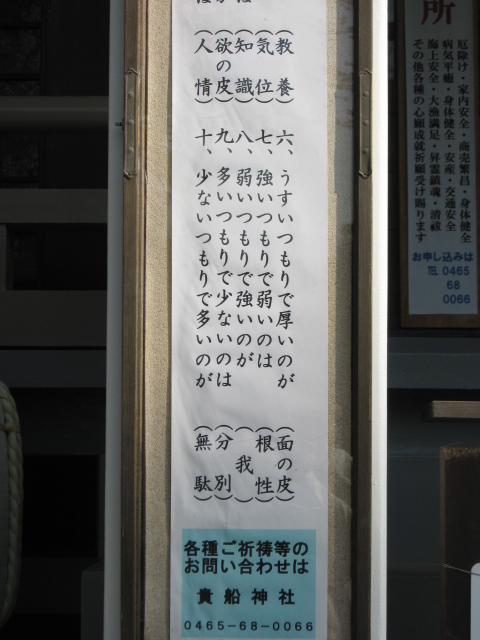 所
厄除け・家内安全・商売繁昌・身体健全
病気平癒・身体健全・安産・交通安全
海上安全・大漁満足・昇霊鎮魂・清祓
その他各種の心願成就祈願受け賜ります
お申し込みは
TEL 0465
68
0066
（教養）
（気位）
（知識）
（欲の皮）
（人情）
六、うすいつもりで厚いのが（面の皮）
七、強いつもりで弱いのは（根性）
八、弱いつもりで強いのが（我）
九、多いつもりで少ないのは（分別）
十、少ないつもりで多いのが（無駄）
各種ご祈祷等の
お問い合わせは
貴船神社
0465-68-0066